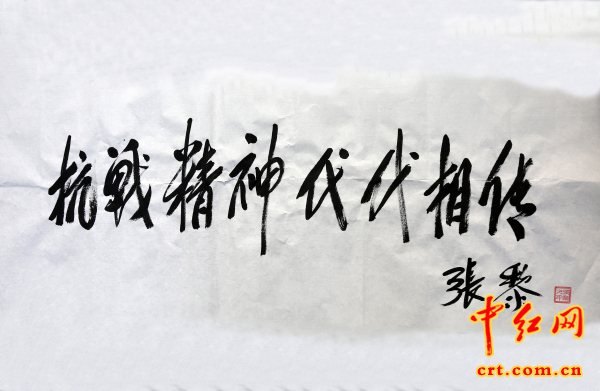 抗战精神代代相传
張黎
中红网
crt.com.cn